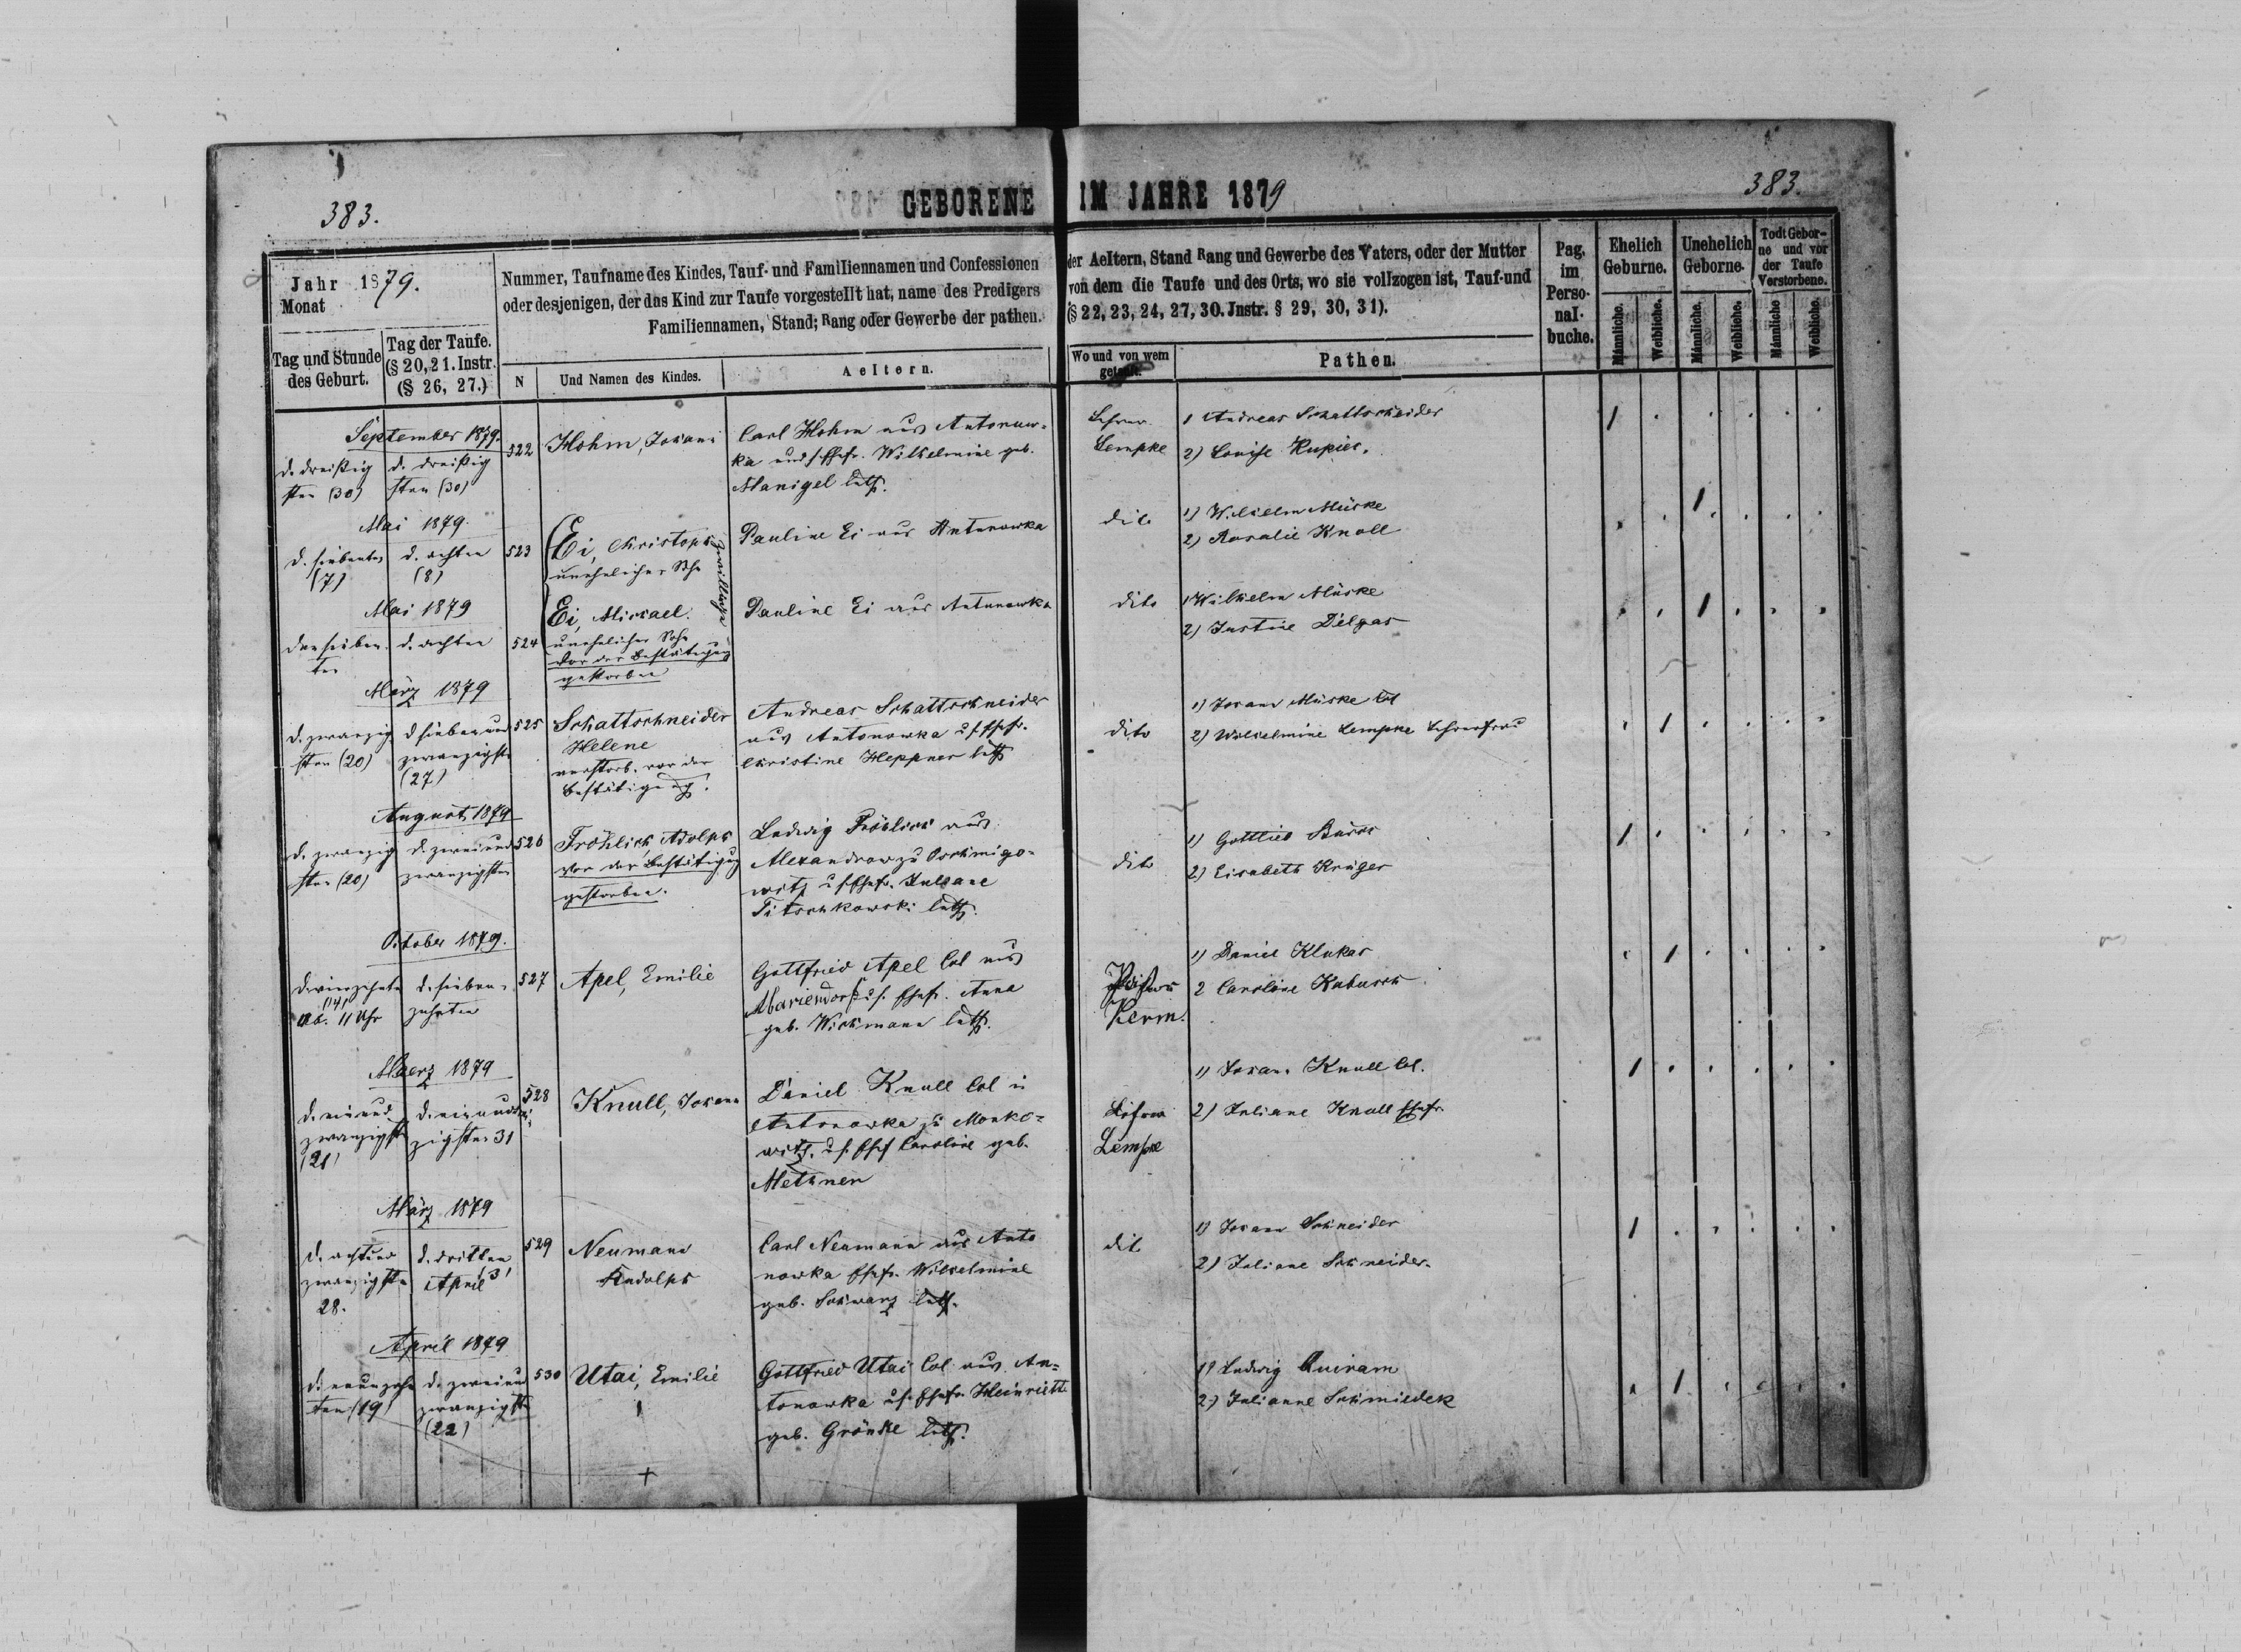 383.
GEBORENE IM JAHRE 1879
383.
Jahr 1879.
Monat
Tag und Stunde
des Geburt.
Tag der Taufe.
(§ 20, 21. Instr.
(§ 26, 27.)
Nummer, Taufname des Kindes, Tauf- und Familiennamen und Confessionen
oder desjenigen, der das Kind zur Taufe vorgestellt hat, name des Predigers
Familiennamen, Stand; Rang oder Gewerbe der pathen.
N
Und Namen des Kindes.
Aeltern.
der Aeltern, Stand Rang und Gewerbe des Vaters, oder der Mutter
von dem die Taufe und des Orts, wo sie vollzogen ist, Tauf-und
(§ 22, 23, 24, 27, 30. Jnstr. § 29, 30, 31).
Wo und von wem
getauft.
Pathen.
Pag.
im
Perso-
nal-
buche.
Ehelich
Geburne.
Unehelich
Geborne.
Todt Gebor-
ne und vor
der Taufe
Verstorbene.
Männliche.
Weibliche.
Männliche.
Weibliche.
Männliche
Weibliche.
September 1879.
d. dreißig
sten (30)
d. dreißig
sten (30)
522
Hohm, Johann
Carl Hohm aus Antonow-
ka und s. Ehefr. Wilhelmine geb.
Manigel luth.
Lehrer
Lempke
1 Andreas Schattschneider
2) Louise Rupier.
Mai 1879.
d. siebenten
(7)
d. achten
(8)
523
Ei, Christoph
unehelicher Sohn
Zwillinge
Pauline Ei aus Antonowka
dito
1) Wilhelm Müske
2) Rosalie Knoll
Mai 1879
den sieben-
ten
d. achten
524
Ei, Michael.
unehelicher Sohn
Vor der Bestätigung
gestorben
Pauline Ei aus Antonowka
dito
1) Wilhelm Müske
2) Justine Dilgas
März 1879
d. zwanzig
sten (20)
d sieben und
zwanzigsten
(27)
525
Schattschneider
Helene
verstorb. vor der
Bestätigung.
Andreas Schattschneider
aus Antonowka u s. Ehefr.
Christine Heppner luth
dito
1) Johann Müske Col
2) Wilhelmine Lempke Lehrerfrau
August 1879
d. zwanzig
sten (20)
d. zwei und
zwanzigsten
526
Fröhlich, Adolph
Vor der Bestätigung
gestorben.
Ludwig Fröhlich aus
Alexandrow zu Oschmigo-
witz u s. Ehefr. Juliane
Titschkowski luth.
dito
1) Gottlieb
2) Elisabeth Krüger
October 1879.
d. vierzehnten
(14)
Ab. 11 Uhr
d. sieben-
zehnten
527
Apel, Emilie
Gottfried Apel Col aus
Mariendorf u s. Ehefr. Anna
geb. Wichmann luth.
Pastor
Kerm.
1) Daniel Klukas
2 Caroline Kabusch
Maerz 1879
d. ein und
zwanzigsten
(21)
d. ein und drei
zigsten 31
528
Knull, Johann
Daniel Knull Col in
Antonowka zu Monko-
witz. u s. Ehefr Caroline geb.
Methner
Lehrer
Lempke
1) Johann Knull Col.
2) Juliane Knull Ehefr.
März 1879
d. acht und
zwanzigsten
28.
d. dritten
April 3)
529
Neumann
Rudolph
Carl Neumann aus Anto
nowka Ehefr. Wilhelmine
geb. Schwarz luth.
dit
1) Johann Schneider
2) Juliane Schneider.
April 1879
d. neunzehn
ten (19)
d. zwei und
zwanzigsten
(22)
530
Utai, Emilie
Gottfried Utai Col. aus An-
tonowka u s. Ehefr. Heinriette
geb. Grönke luth.
1) Ludwig Quiram
2) Julianne Schmiedek